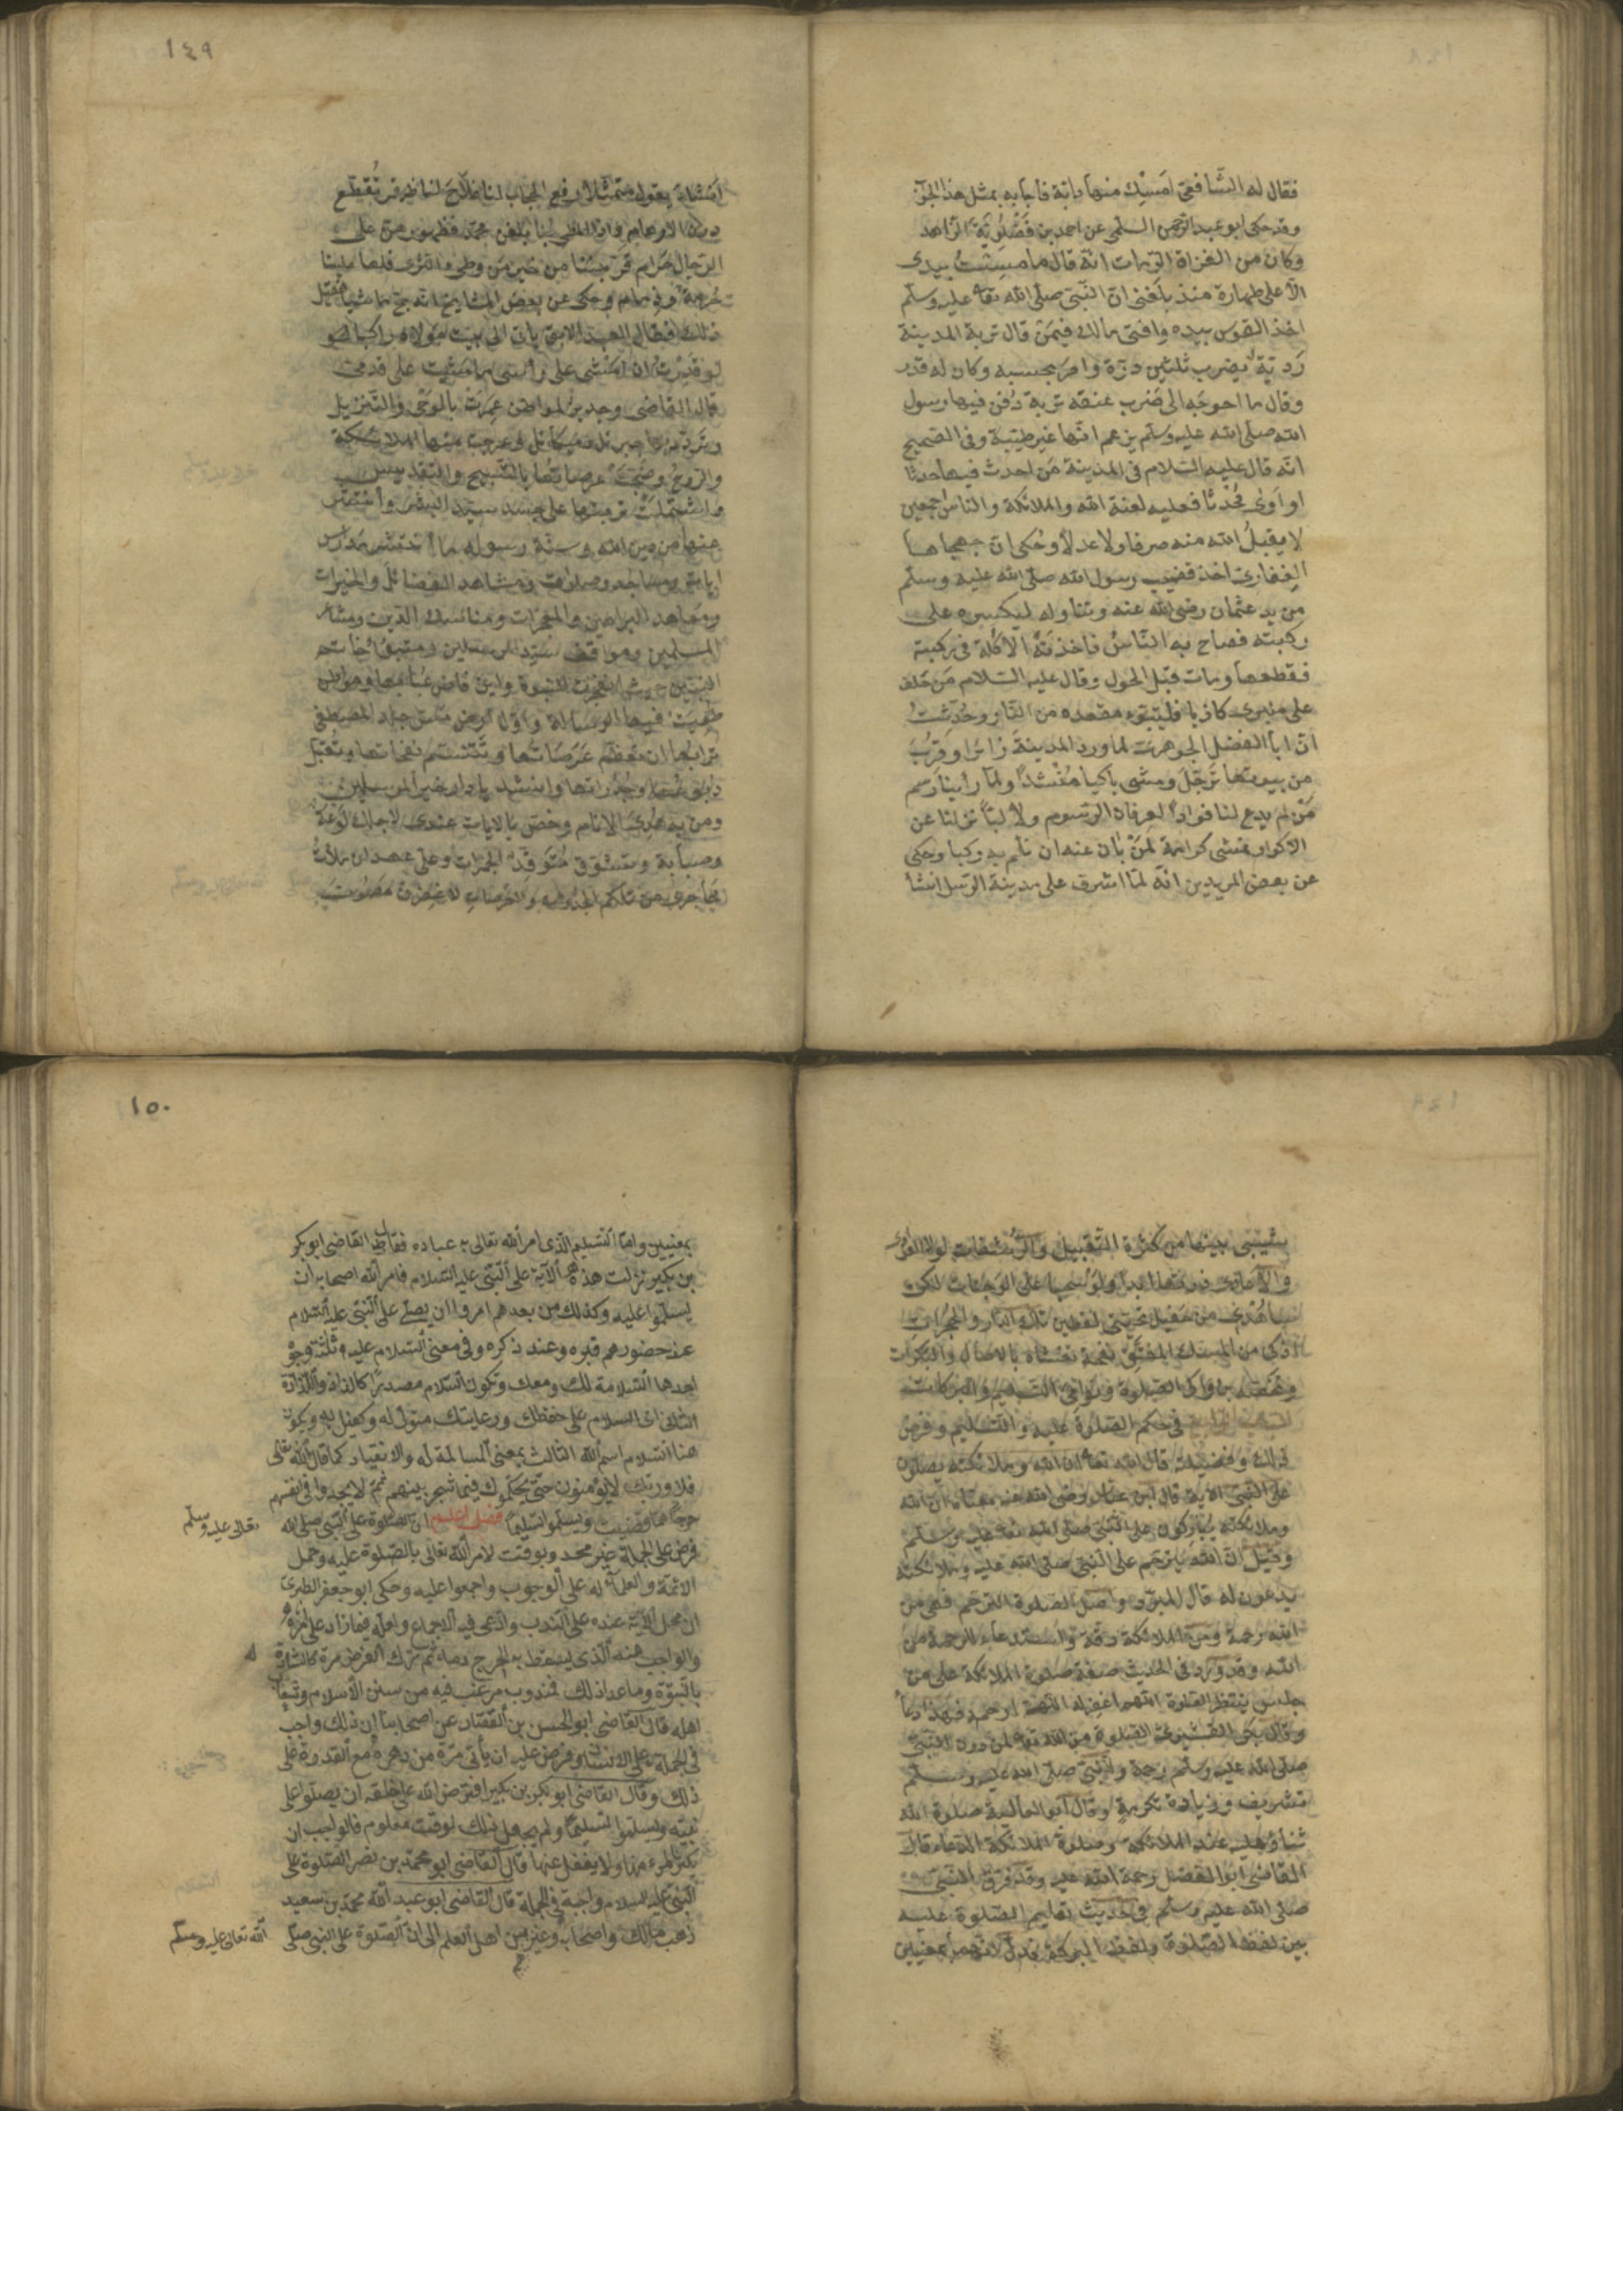 فقال له الشّافعىّ امسك منها دابّة فاجابه بمثل هذا الجواب
وقد حكى ابو عبد الرّحمن السلمى عن احمد بن فَضْلُويَة الزّاهد
وكان من الغزاة الرّماة انّه قال ما مسِسْتُ بيدى
الّا على طهارة منذ بلغنى انّ النّبىّ صلّى الله تعا عليه وسلّم
اخذ القوس بيده وافتى مالك فيمَن قال تربة المدينة
رَدِيّة يضرب ثلثين درّة وامَرَ بحبسه وكان له قدر
وقال ما احوجَه الى ضَرب عنقه تربة دُفن فيها رسول
الله صلّى الله عليه وسلّم يزعم انّها غير طيّبة وفى الصّحيح
انّه قال عليه السّلام فى المدينة مَن احدث فيها حدثا
او اوى مُحْدثا فعليه لعنة الله والملائكة والناس اجمعين
لا يقبلُ الله منه صرفا ولا عدلا وحُكى انّ جهجاها
الغِفارىّ اخذ قضيب رسول الله صلّى الله عليه وسلّم
من يد عثمان رضى الله عنه وتناوله ليكسره على
رُكبته فصاح به النّاسُ فاخذَتْهُ الآكلة فى ركبته
فقطعها ومات قبل الحول وقال عليه السّلام مَن حَلف
على منبرى كاذبا فليتبوّء مقعده من النّار وحُدّثتُ
انّ ابا الفضل الجوهرىّ لمّا ورد المدينةَ زائرا وقرُب
من بيوتها ترجّلَ ومشى باكيا مُنشدًا ولمّا رأينا رَسم
مَن لم يدع لنا فوادًا لعرفان الرّسوم ولا لبّا نزلنا عن
الاكوار نمشى كرامة لمَنْ بان عنه ان نلم به ركبا وحكى
عن بعض المريدين انّه لمّا اشرف على مدينة الرّسول انشأ
١٤٩
يقول متمثّلا رفع الحجاب لنا فلاحَ لناظر قمر تُقطّع
دونه الاوهام واذا المطىّ بنا بلغن محمّدا فظهورهنّ على
الرّحال حَرام قرّبننا من خير مَن وطئ الثرى فلها علينا
حُرمة وذمام وحكى عن بعض المشايخ انّه حجّ ماشيا فقيل له
ذلك فقال العبد الابق يأتى الى بيت مَولاه راكبا
لو قدَرْتُ ان امشى على رأسى ما مَشيت على قدمى
قال القاضى وجدير لمواطن عمِرَتْ بالوَحْى والتّنزيل
وتردّد بها جبريل وميكائيل وعرجت منها الملائكة
والرّوح وضجّتْ عرصاتها بالتّسبيح والتّقديس
واشتملتْ تربتها على جسد سيّد البشر وانتشر
عنها من دين الله وسنّة رسوله ما انتشر مدارس
ايات ومساجد وصلوات ومشاهد الفضائل والخيرات
ومعاهد البراهين والمعجزات ومناسك الدّين ومشاعر
المسلمين ومواقف سيّد المرسلين ومتبوّأ خاتم
النّبيّين حيث انفجرت النّبوة واين فاض عُبابها ومواطن
فيها الرسالة واوّل ارض مسّ جلد المصطفى
ترابُها ان تعظّم عَرَصَاتها وتتنسّم نفحاتها وتقبّل
ربوعُها وجُدراتها وانشد يا دار خير المرسلين
ومن به هُدِىَ الانام وخصّ بالايات عندى لاجلك لوْعة
وصبابة وتشوّق متوقّد الجمرات وعلىّ عهد ان ملأتُ
محاجرى من تلكم الجدرات والعرصات لاعفّرنّ مَصُونَ
شيبى بينها من كثرة التّقبيل والرّشفات لولا العوادى
والاعادى زرتها ابدا ولو سحبا على الوجنات لكن
سأهدى من حفيل تحيّتى لقطين تلك الدّار والحجرات
اذكى من المسك المفتّق نفحة تغشاه بالاصال والبكرات
وتخصّه بزواكى الصّلوة ونوامى التّسليم والبركات
الباب الرّابع فى حكم الصّلوة عليه والتّسليم وفرض
ذلك وفضيلته قال الله تعا ان الله وملائكته يصلون
على النّبىّ الاية قال ابن عبّاس رضى الله عنه معناه انّ الله
وملائكته يُباركون على النّبىّ صلّى الله تعا عليه وسلّم
وقيل انّ الله يترحّم على النّبىّ صلّى الله عليه وملائكته
يدعون له قال المبرّد واصل الصّلوة الترحّم فهى من
الله رحمة ومن الملائكة رقّة واستدعاء للرحمة من
الله وقد ورد فى الحديث صفة صلوة الملائكة على من
جلس ينتظر الصّلوة اللّهمّ اغفر له اللّهمّ ارحمه فهذا دعاء
وقال بكر القشيرىّ الصّلوة من الله تعا لمن دون النّبىّ
صلّى الله عليه وسلّم رحمة وللنّبىّ صلّى الله عليه وسلّم
تشريف وزيادة تكرمة وقال ابو العالية صلوة الله
ثناؤه عليه عند الملائكة وصلوة الملائكة الدّعاء قال
القاضى ابو الفضل رحمة الله عليه وقد فرّق النّبىّ
صلى الله عليه وسلّم فى حديث تعليم الصّلوة عليه
بين لفظ الصّلوة ولفظ البركة فدلّ انّهما بمعنيين
١٥٠
بمعنيين وامّا التّسليم الّذى امر الله تعالى به عباده فقال القاضى ابو بكر
بن بكير نزلت هذه الآية على النّبىّ عليه السّلام فامر الله اصحابه ان
يسلّموا عليه وكذلك من بعدهم امروا ان يصلّى على النّبىّ عليه السّلام
عند حضورهم قبره وعند ذكره وفى معنى السّلام عليه ثلثة وجوه
احدها السّلامة لك ومعك وتكون السّلام مصدرًا كاللذاذ واللّذاذة
الثانى اى السلام على حفظك ورعايتك متولّ له وكفيل به ويكون
هنا السّلام اسم الله الثالث بمعنى المسالمة له والانقياد كما قال الله تعالى
فلا وربّك لا يؤمنون حتّى يحكّموك فيما شجر بينهم ثمّ لا يجدوا فى انفسهم
حرجًا ممّا قضيت ويسلّموا تسليمًا فصل اعلم انّ الصّلوة على النّبىّ صلى الله
تعالى عليه وسلّم
فرض على الجملة غير محدود بوقت لامر الله تعالى بالصّلوة عليه وحمل
الائمّة والعلمآء له على الوجوب واجمعوا عليه وحكى ابو جعفر الطبرىّ
ان محمل الآية عنده على النّدب وادّعى فيه الاجماع ولعلّه فيما زاد على مرّة
والواجب منه الّذى يسقط به الحرج ومأثم ترك الفرض مرّة كالشّهادة له
بالنّبوّة وما عدا ذلك فمندوب مرغّب فيه من سنن الاسلام وشعار
اهله قال القاضى ابو الحسن بن القصّار عن اصحابنا ان ذلك واجب
فى الجملة على الانسان وفرض عليه ان يأتى مرّة من دهره مع القدرة على
ذلك وقال القاضى ابو بكر بن بكير افترض الله على خلقه ان يصلّوا على
نبيّه ويسلّموا تسليمًا ولم يجعل ذلك لوقت معلوم فالواجب ان
يكثر المرء منها ولا يغفل عنها قال القاضى ابو محمّد بن نصر الصّلوة على
النّبىّ عليه السلام واجبة فى الجملة قال القاضى ابو عبد الله محمّد بن سعيد
ذهب مالك واصحابه وغيرهم من اهل العلم الى انّ الصّلوة على النبى صلّى
الله تعالى عليه وسلّم